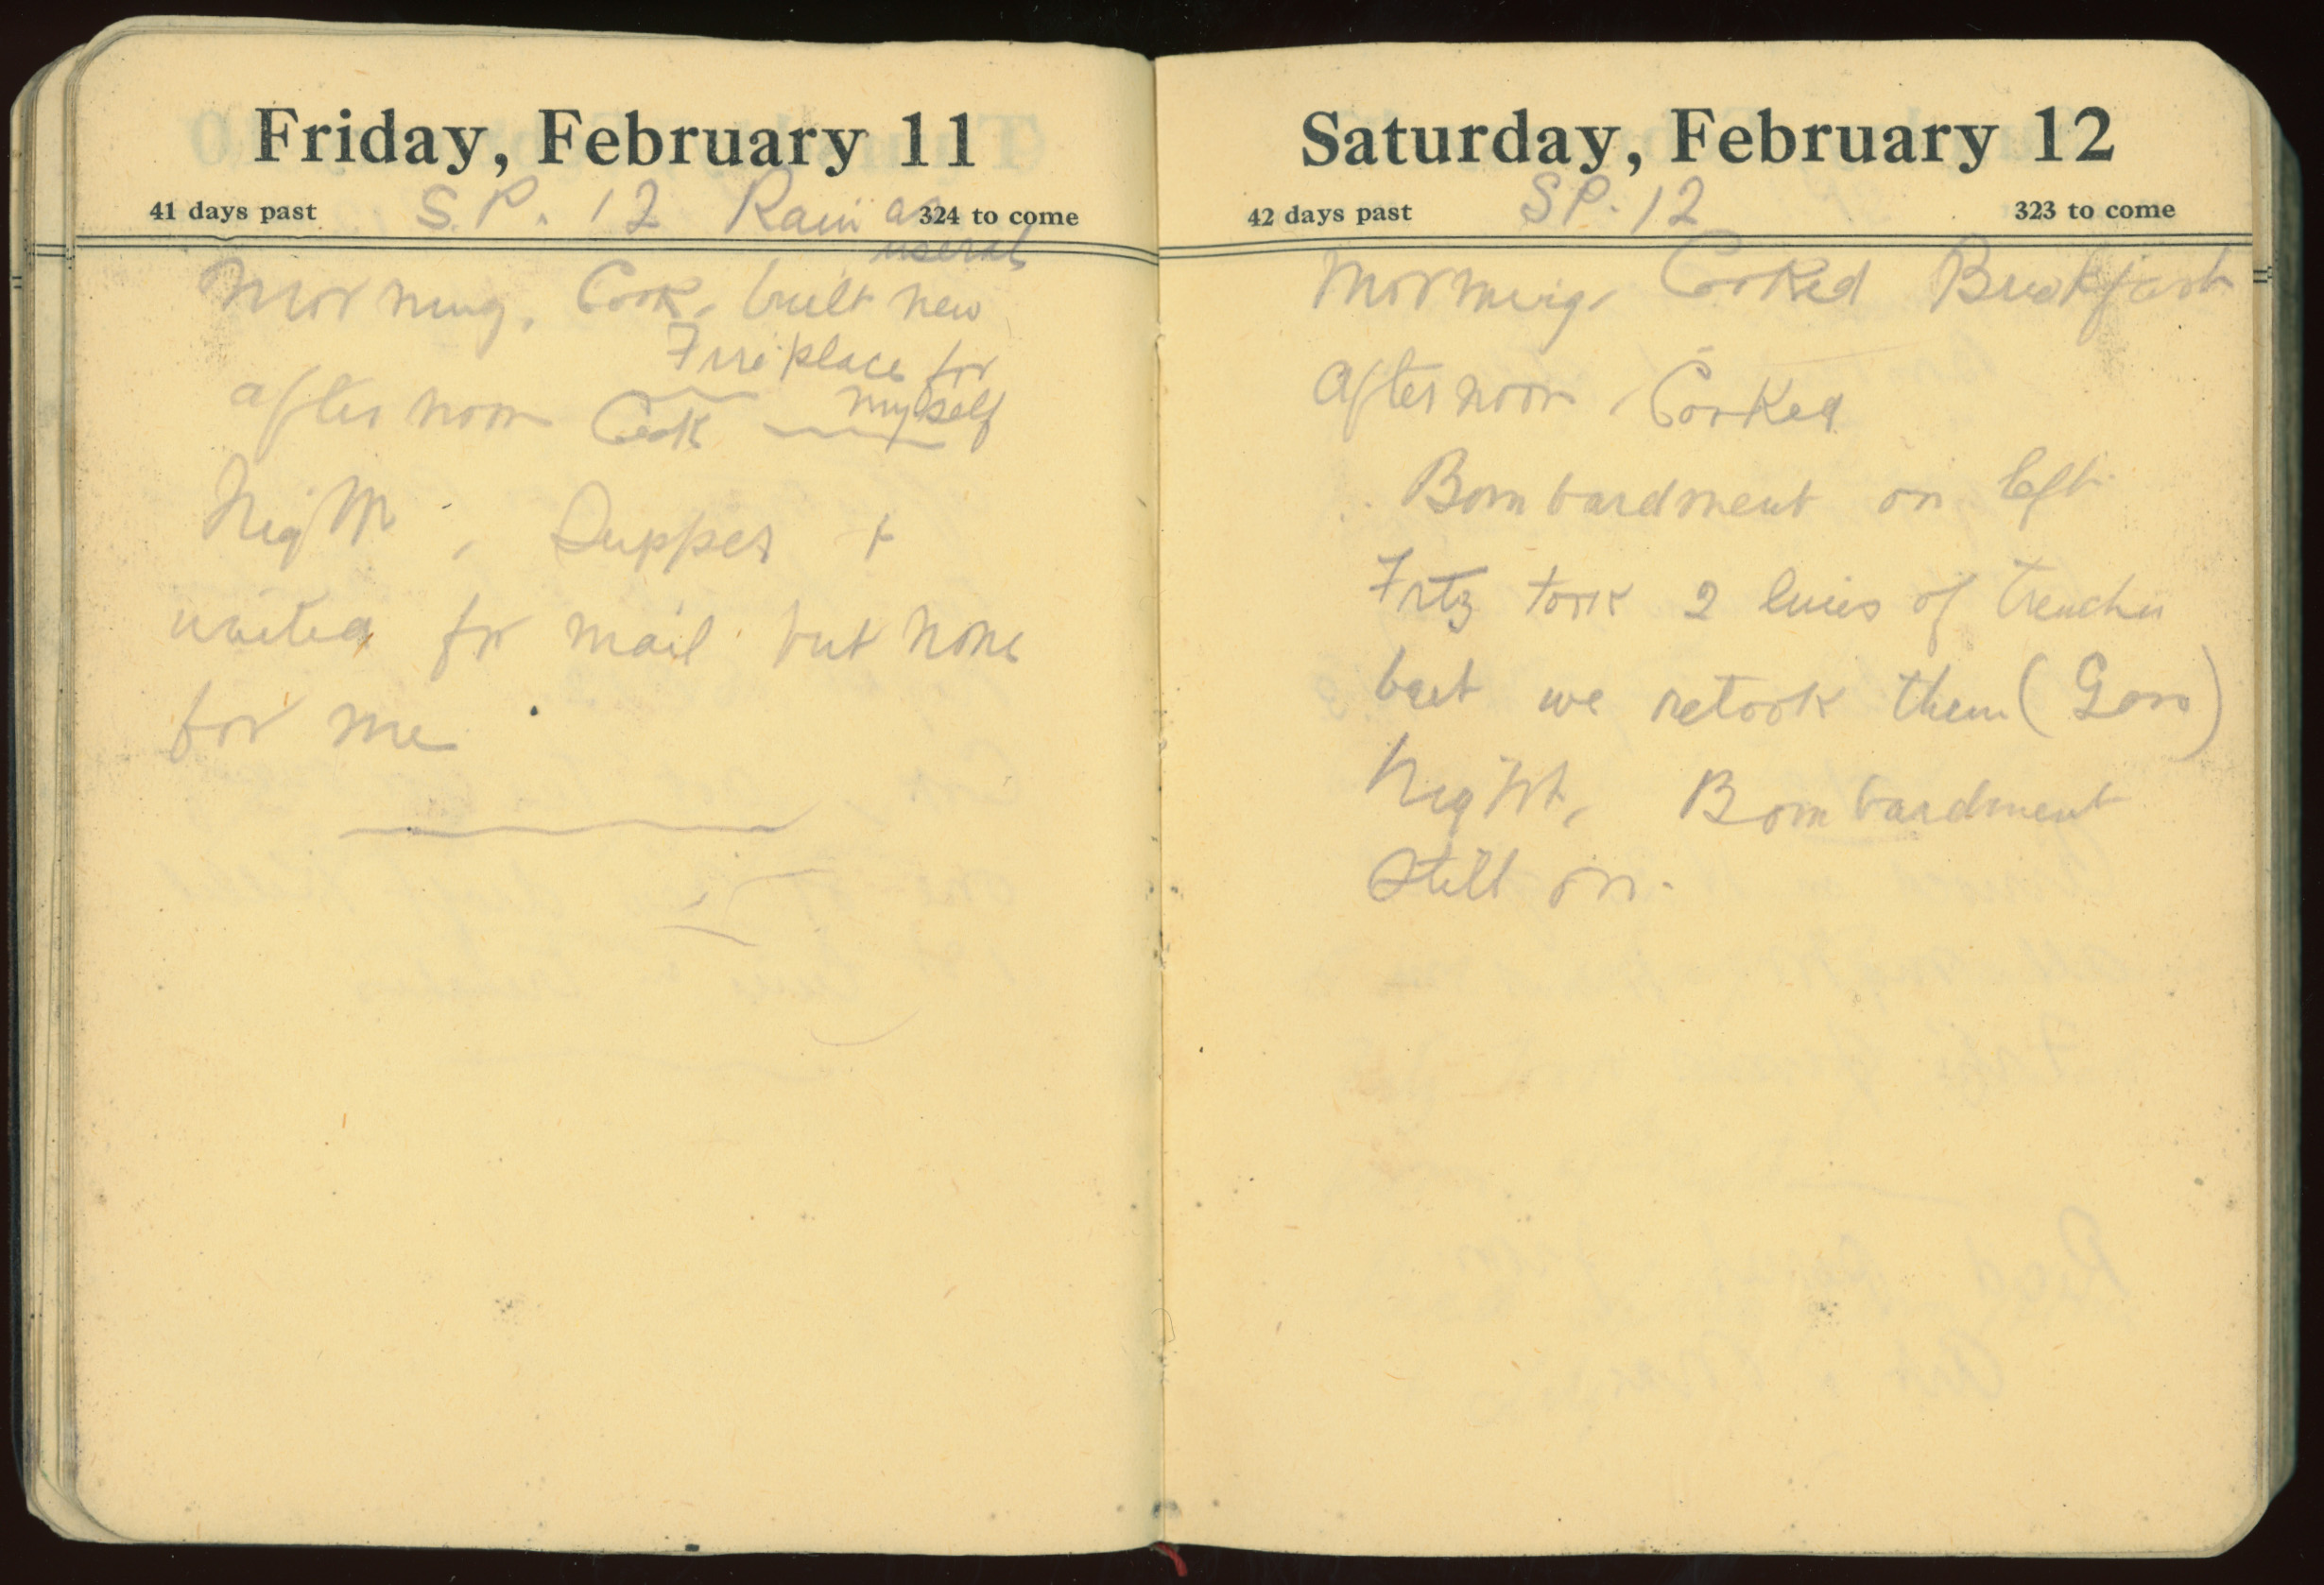 Friday, February 11
41 days past
324 to come
S.P. 12 Rain as
useral
Morning, Cook, built new
Fireplace for
myself
afternoon Cook
Night, Supper +
waited for mail but none
for me
Saturday, February 12
42 days past
323 to come
SP. 12
Morning, Cooked Breakfast
Afternoon, Cooked
Bombardment on left
Fritz took 2 lines of trenches
but we retook them
Night, Bombardment
Still on.